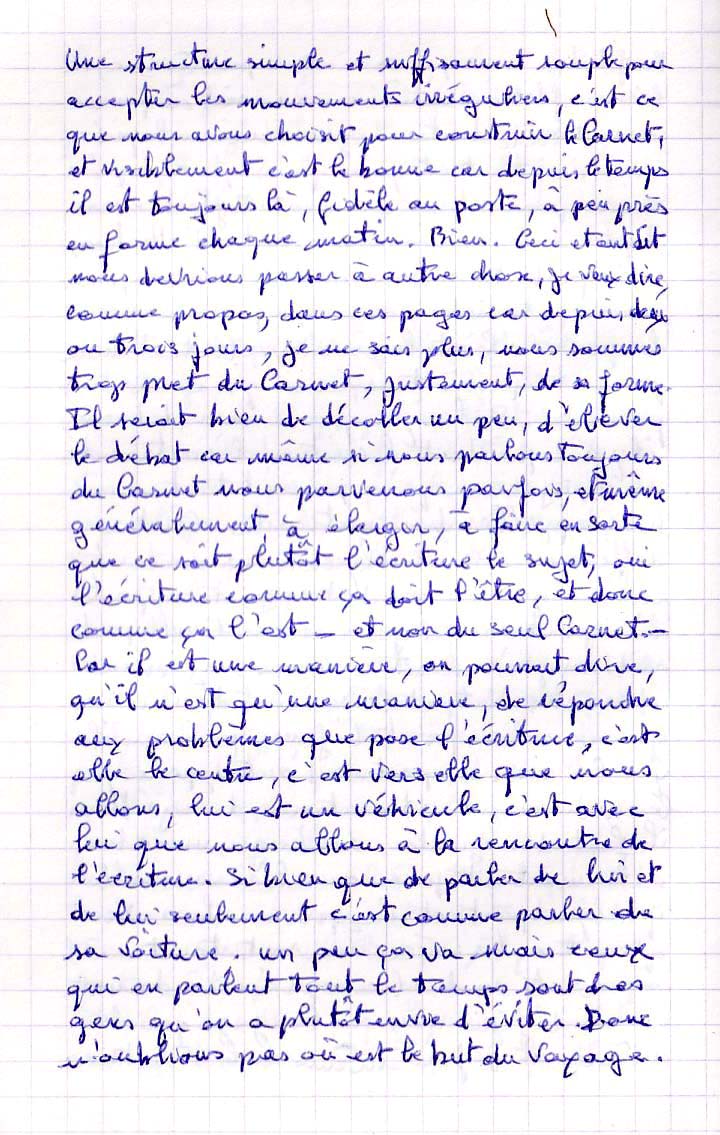 Une structure simple et suffisament souple pour
accepter les mouvements irréguliers, c'est ce
que nous avons choisit pour construire le Carnet,
et visiblement c'est la bonne car depuis le temps
il est toujours là, fidèle au poste, à peu près
en forme chaque matin. Bien. Ceci étant dit
nous devrions passer à autre chose, je veux dire,
comme propos, dans ces pages car depuis deux
ou trois jours, je ne sais plus, nous sommes
trop pret du Carnet, justement, de sa forme.
Il serait bien de décoller un peu, d'élever
le débat car même si nous parlons toujours
du Carnet nous parvenons parfois, et même
généralement, à élargir, à faire en sorte
que ce soit plutôt l'écriture le sujet, oui
l'écriture comme ça doit l'être, et donc
comme ça l'est – et non du seul Carnet. –
Car il est une manière, on pourrait dire,
qu'il n'est qu'une manière, de répondre
aux problèmes que pose l'écriture, c'est
elle le centre, c'est vers elle que nous
allons, lui est un véhicule, c'est avec
lui que nous allons à la rencontre de
l'écriture. Si bien que de parler de lui et
de lui seulement c'est comme parler de
sa voiture. un peu ça va mais ceux
qui en parlent tout le temps sont des
gens qu'on a plutôt envie d'éviter. Donc
n'oublions pas où est le but du voyage.